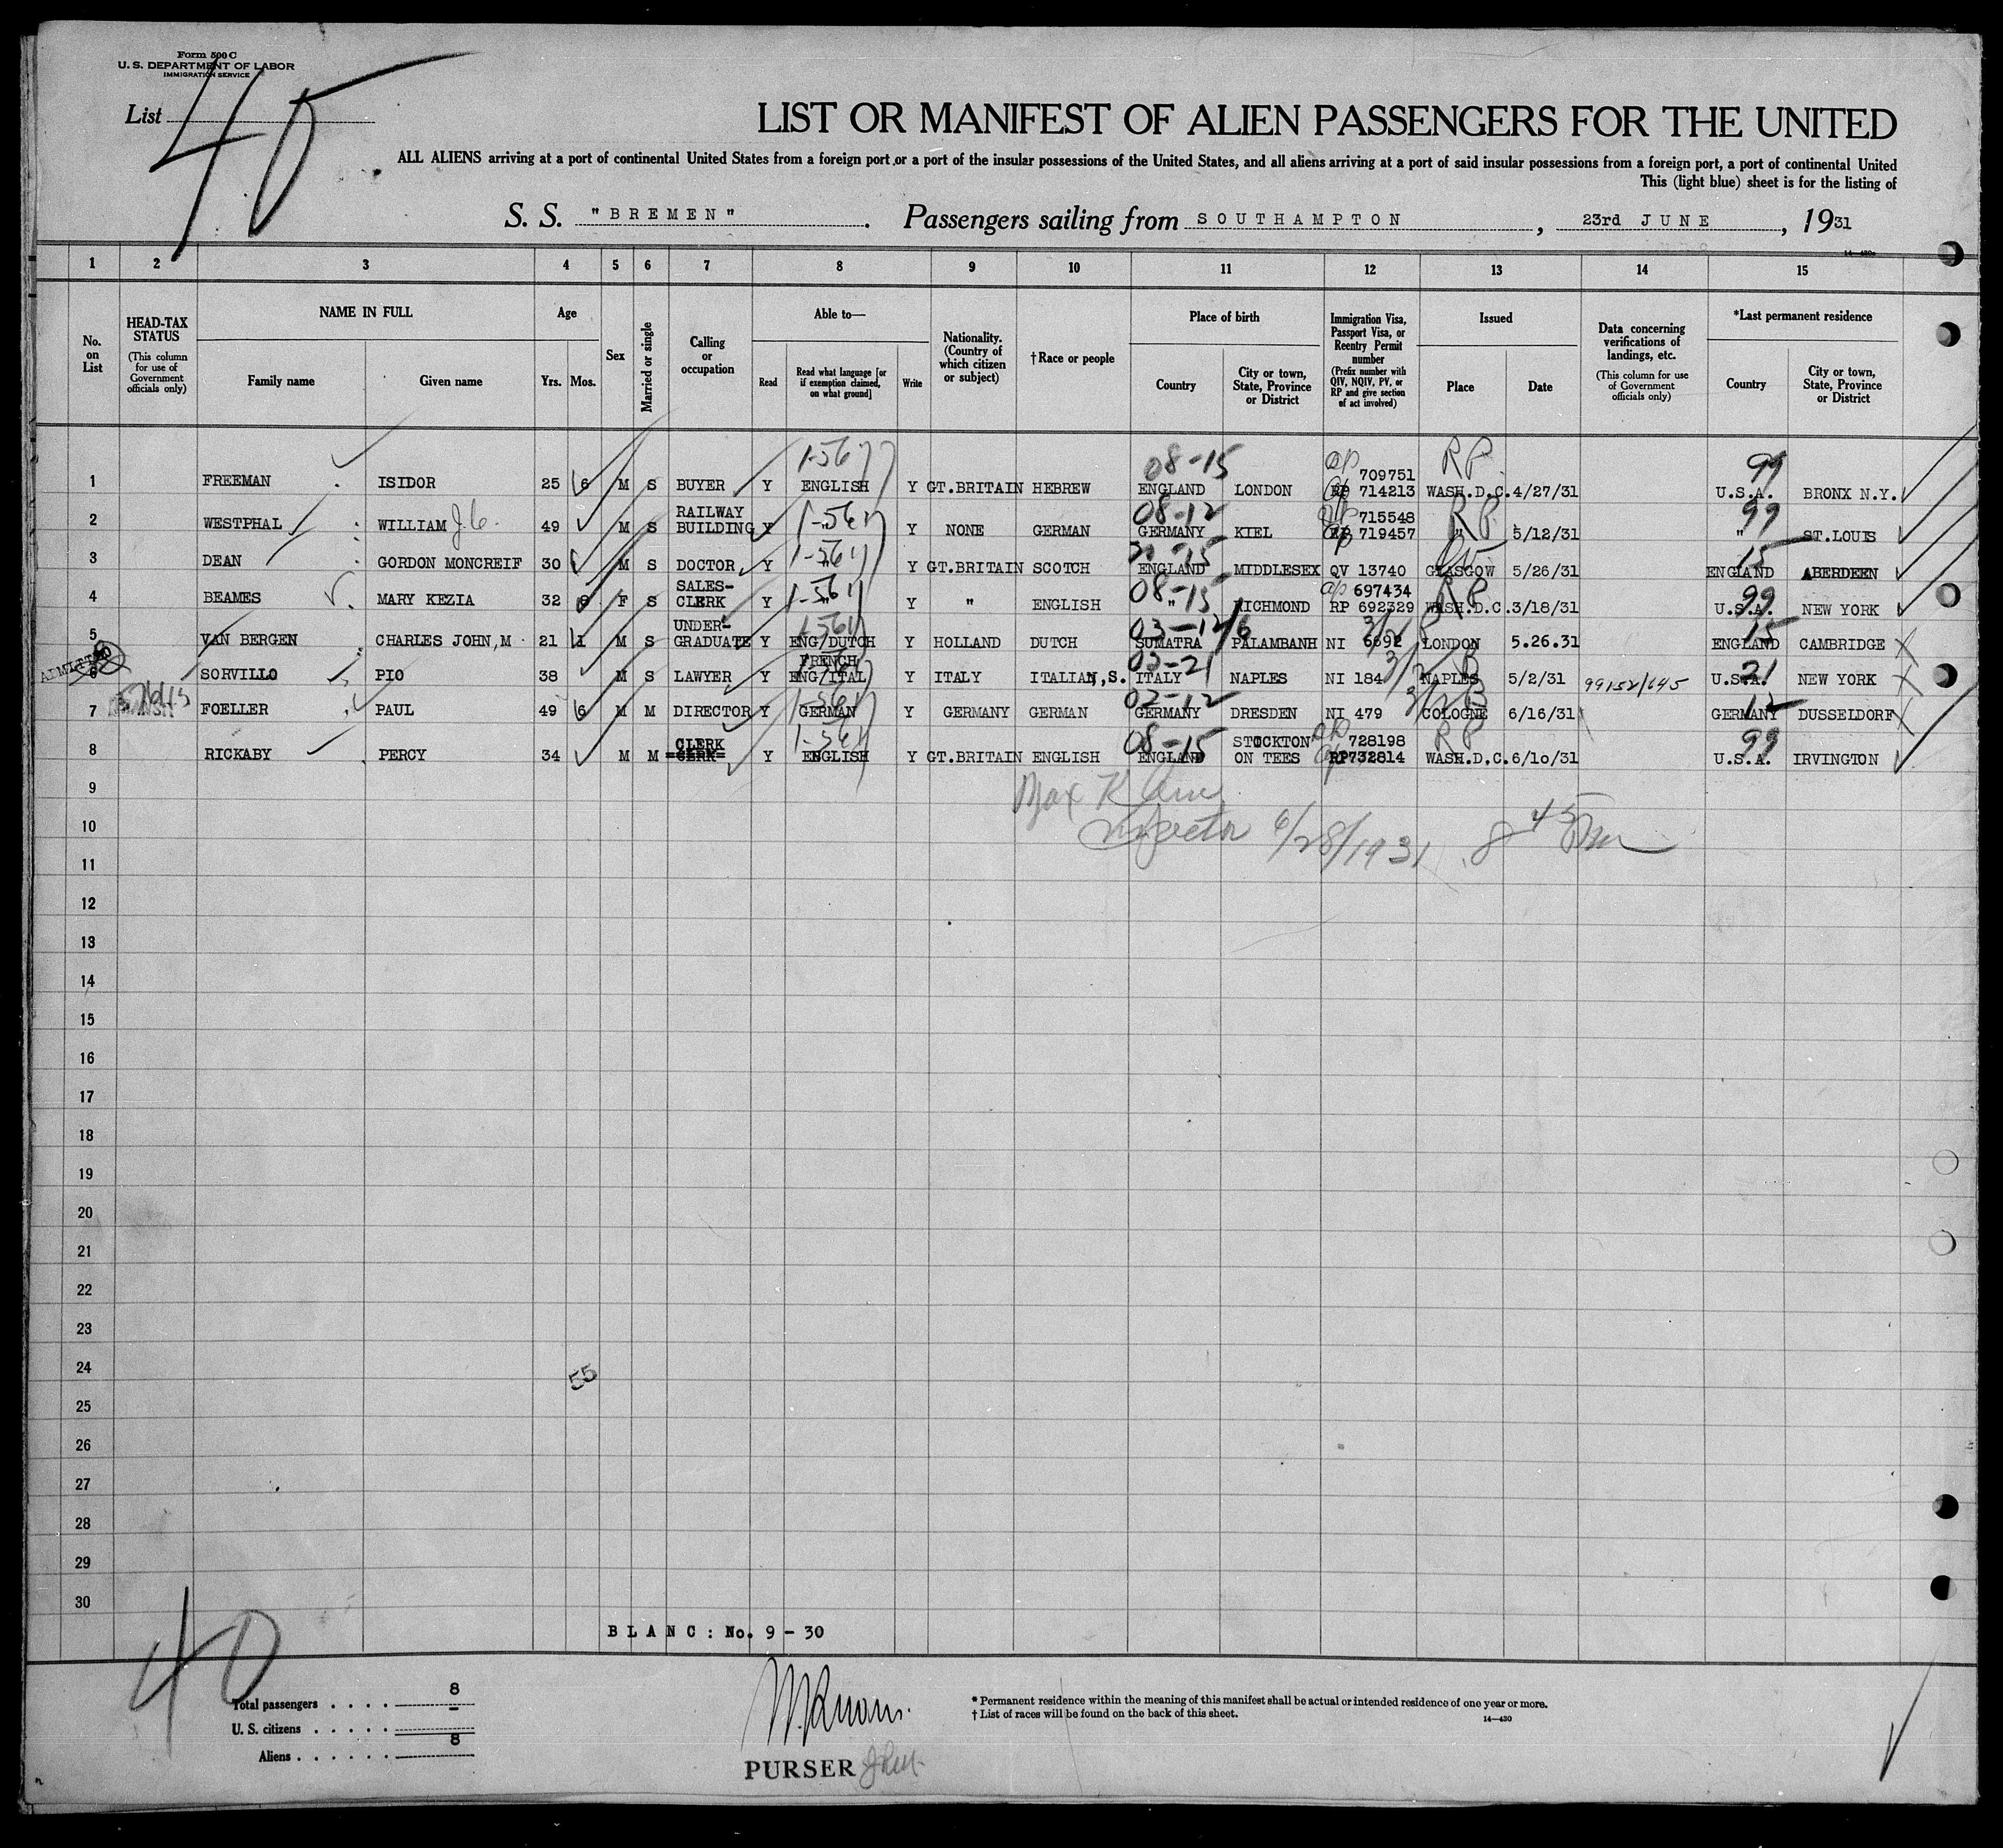 Form 500 C
U. S. DEPARTMENT OF LABOR
IMMIGRATION SERVICE
List 40
LIST OR MANIFEST OF ALIEN PASSENGERS FOR THE UNITED
ALL ALIENS arriving at a port of continental United States from a foreign port or a port of the insular possessions of the United States, and all aliens arriving at a port of said insular possessions from a foreign port, a port of continental United
This (light blue) sheet is for the listing of
S. S. "BREMEN". Passengers sailing from SOUTHAMPTON, 23rd JUNE, 1931
14—430
1 2 3 4 5 6 7 8 9 10 11 12 13 14 15
No. on List
HEAD-TAX STATUS (This column for use of Government officials only)
NAME IN FULL Family name Given name
Age Yrs. Mos.
Sex
Married or single
Calling or occupation
Able to— Read Read what language [or if exemption claimed, on what ground] Write
Nationality. (Country of which citizen or subject)
†Race or people
Place of birth Country City or town, State, Province or District
Immigration Visa, Passport Visa, or Reentry Permit number (Prefix number with QIV, NQIV, PV, or RP and give section of act involved)
Issued Place Date
Data concerning verifications of landings, etc. (This column for use of Government officials only)
*Last permanent residence Country City or town, State, Province or District
1 FREEMAN ISIDOR 25 6 M S BUYER Y ENGLISH Y GT.BRITAIN HEBREW 08-15 ENGLAND LONDON 709751 RP 714213 RP WASH.D.C. 4/27/31 99 U.S.A. BRONX N.Y.
2 WESTPHAL WILLIAM 49 M S RAILWAY BUILDING Y " Y NONE GERMAN 08-12 GERMANY KIEL 715548 RP 719457 RP " 5/12/31 99 " ST.LOUIS
3 DEAN GORDON MONCREIF 30 M S DOCTOR Y " Y GT.BRITAIN SCOTCH ENGLAND MIDDLESEX QV 13740 GLASGOW 5/26/31 15 ENGLAND ABERDEEN
4 BEAMES MARY KEZIA 32 F S SALES-CLERK Y " Y " ENGLISH 08-15 " RICHMOND 697434 RP 692329 RP WASH.D.C. 3/18/31 99 U.S.A. NEW YORK
5 VAN BERGEN CHARLES JOHN,M 21 1 M S UNDER-GRADUATE Y ENG/DUTCH Y HOLLAND DUTCH 03-12 SUMATRA PALAMBANH NI 6692 LONDON 5.26.31 15 ENGLAND CAMBRIDGE
ADMITTED
6 SORVILLO PIO 38 M S LAWYER Y FRENCH ENG/ITAL Y ITALY ITALIAN,S. 02-21 ITALY NAPLES NI 184 NAPLES 5/2/31 99152/645 21 U.S.A. NEW YORK
7 FOELLER PAUL 49 6 M M DIRECTOR Y GERMAN Y GERMANY GERMAN 02-12 GERMANY DRESDEN NI 479 COLOGNE 6/16/31 12 GERMANY DUSSELDORF
8 RICKABY PERCY 34 M M CLERK Y ENGLISH Y GT.BRITAIN ENGLISH 08-15 ENGLAND STOCKTON ON TEES 728198 RP732814 RP WASH.D.C. 6/10/31 99 U.S.A. IRVINGTON
9
Inspector 6/28/1931 8 45
10
11
12
13
14
15
16
17
18
19
20
21
22
23
24
55
25
26
27
28
29
30
BLANC: No. 9 - 30
40
Total passengers . . . . 8
U. S. citizens . . . . . -
Aliens . . . . . . 8
PURSER
* Permanent residence within the meaning of this manifest shall be actual or intended residence of one year or more.
† List of races will be found on the back of this sheet.
14—430